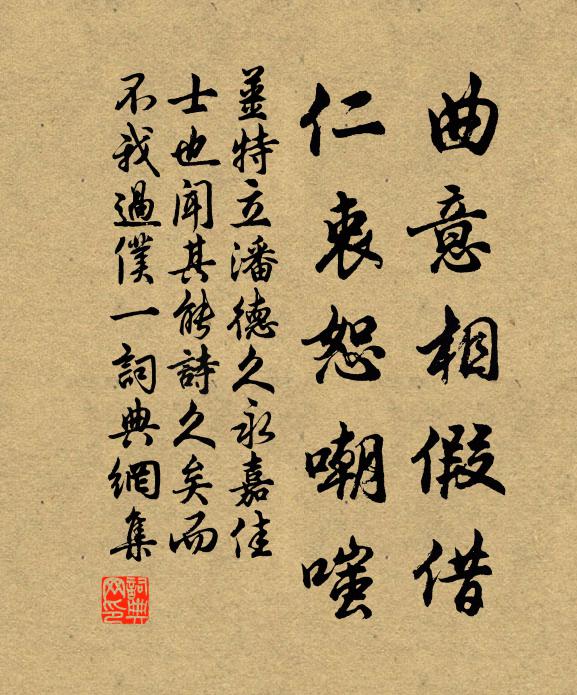 曲意相假借
仁衷恕嘲嗤
薑特立潘德久永嘉佳
士也聞其能詩久矣而
不我過僕一詞典網集
詞典
网印